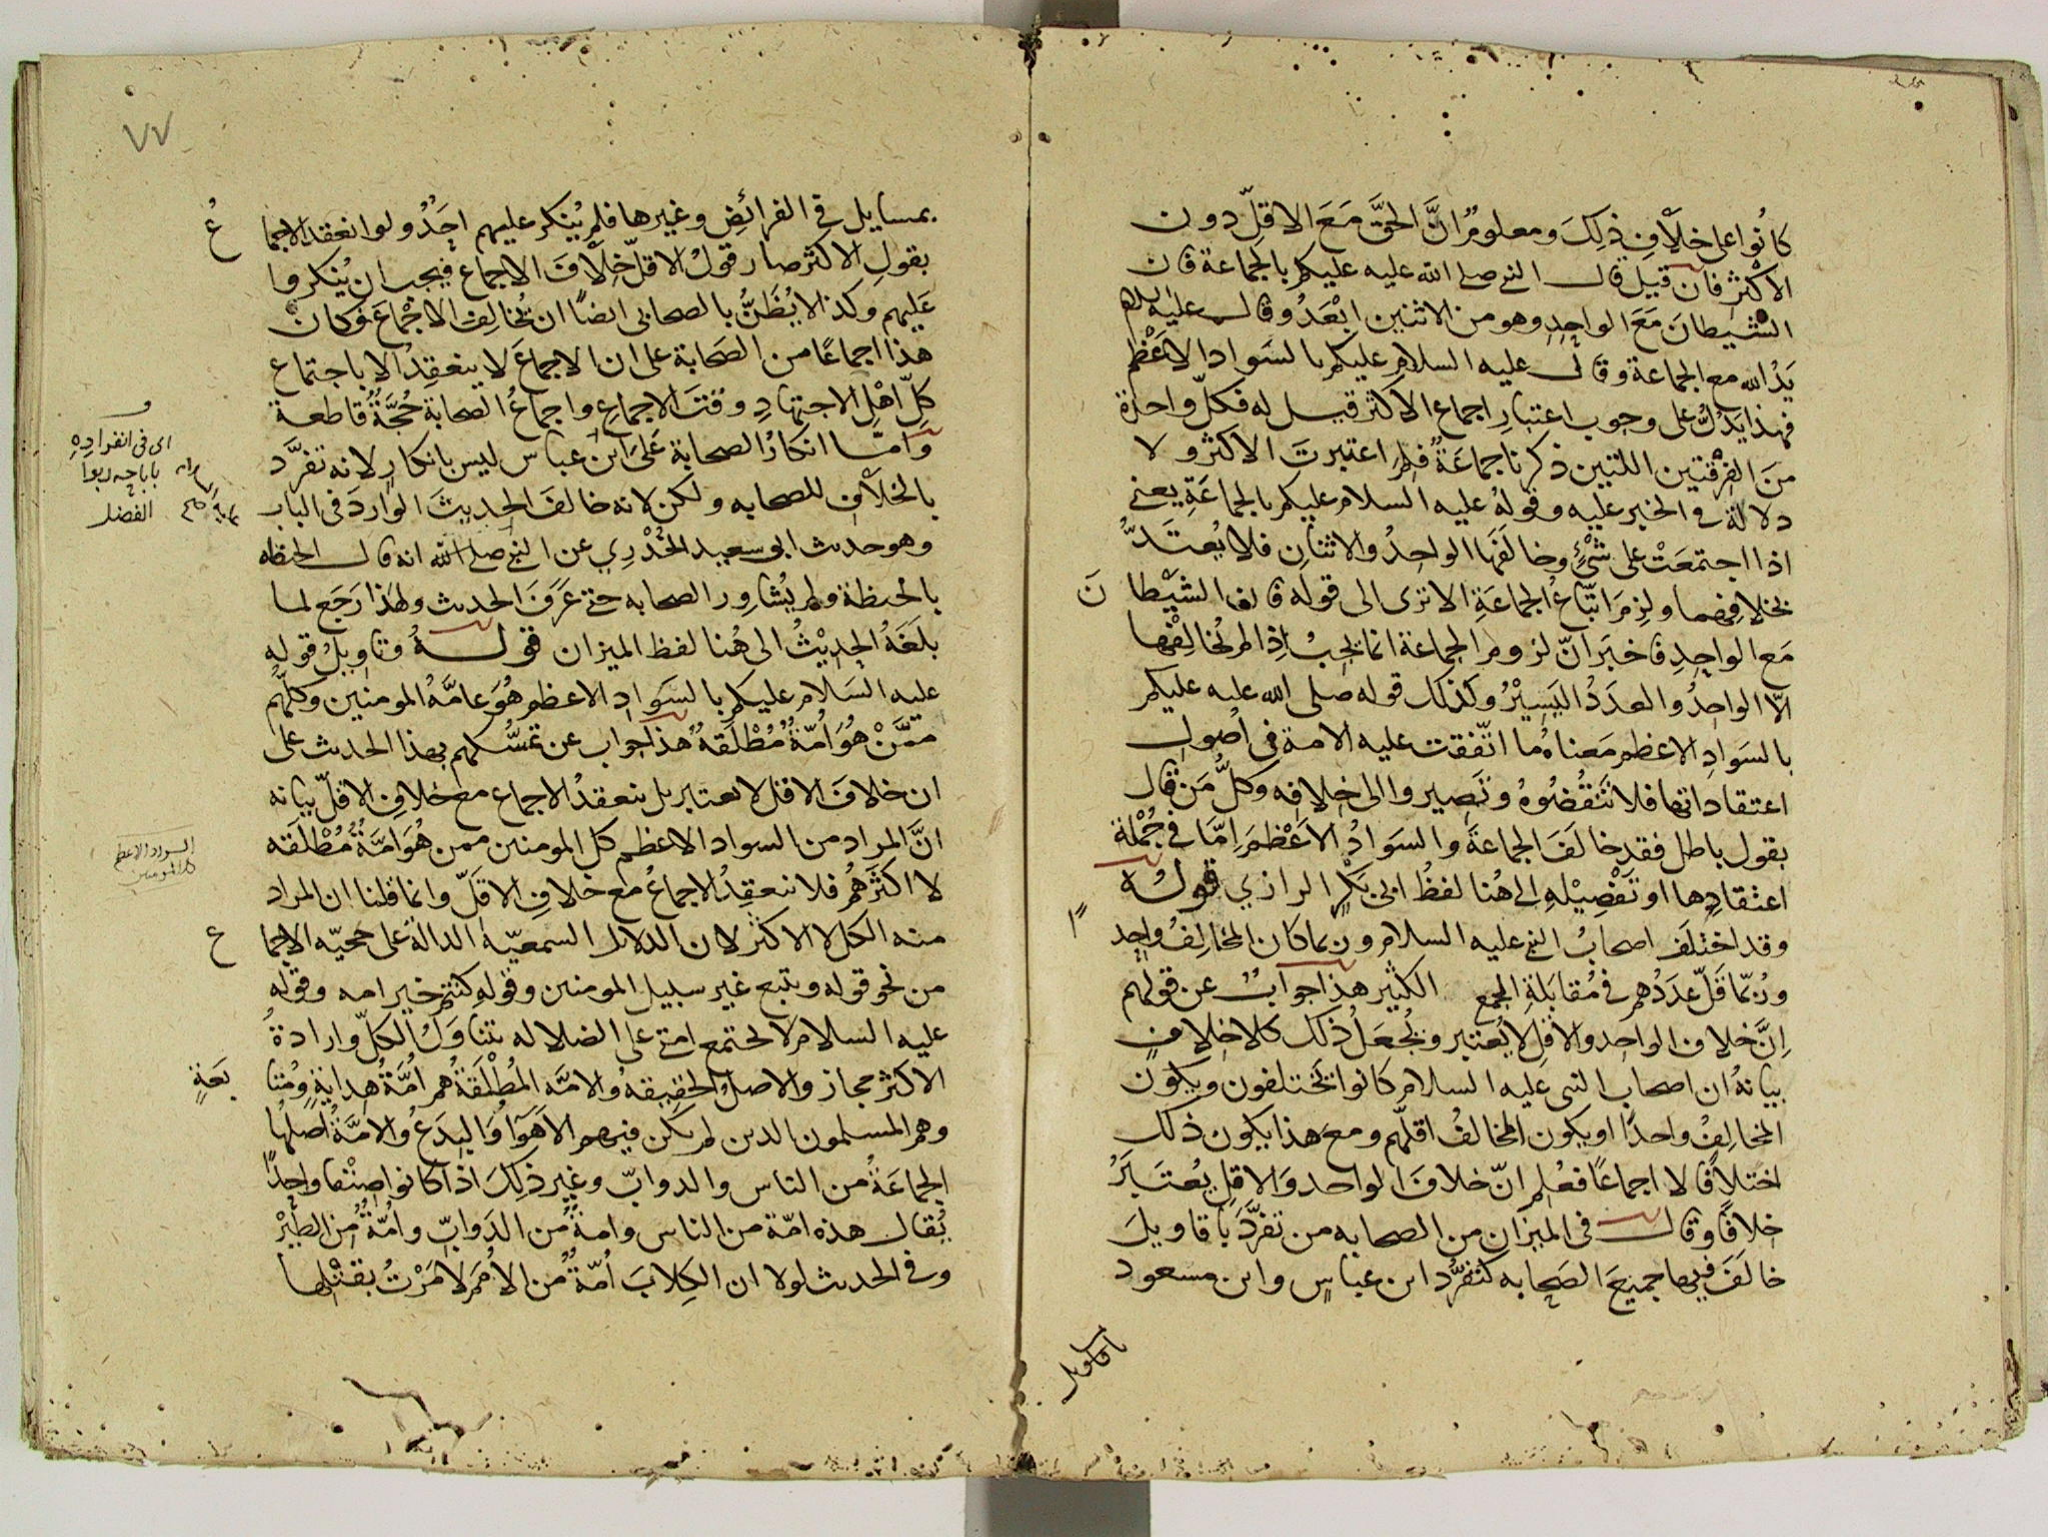 كانُوا على خلافِ ذلِكَ ومعلومٌ انَّ الحقَّ مَعَ الاقلِّ دون
الاكثرِ فان قيل قال النبي صلى الله عليه عليكم بالجماعة فان
الشيطانَ مَعَ الواحدِ وهو من الاثنين ابْعَدُ وقال عليه السلام
يَدُ الله مع الجماعة وقال عليه السلام عليكم بالسَواد الاعْظم
فهذا يَدُلُّ على وجوب اعتبارِ اجماع الاكثر قيل له فكلّ واحدة
مَنَ الفِرْقتين اللتين ذكرنا جماعَةٌ فلِمَ اعتبرتَ الاكثر ولا
دلالةَ في الخبر عليه وقولهُ عليه السلام عليكم بالجماعَةِ يعني
اذا اجتمعَتْ على شئٍ وخالفَها الواحدُ والاثنانِ فلا يُعتَدُّ
بخلافِهما ولزِمَ اتّباعُ الجماعَةِ الا ترى الى قوله فان الشَيْطانَ
مَع الواحِدِ فاخبَرَ انّ لزوم الجماعة انما يجبُ اِذا لم يُخالِفْها
الّا الواحدُ والعدَدُ اليَسِيْرُ وكذلك قوله صلى الله عليه عليكم
بالسَوادِ الاعظم مَعناهُ ما اتّفقت عليه الامة في اُصولِ
اعتقاداتها فلا تَنْقُضُوهُ وتَصِيروا الى خلافِه وكلُّ مَن قال
بقول باطل فقد خالَفَ الجماعةَ والسَوادُ الاَعْظمَ اِمّا في جُمْلة
اعتقادِها او تَفْصِيْلهِ الى هُنا لفظُ ابى بَكْرٍ الرازي قولُه
وقد اختلَفَ اصحابُ النبي عليه السلام وربما كان المخالِفُ واحِداً
ورُبّما قلّ عَدَدُهم في مُقابَلةِ الجمع الكثير هذا جوابٌ عن قولهم
اِنَّ خلاف الواحد والاقلِ لا يُعتبر ويُجعَلُ ذلك كلا خلافٍ
بيانهُ ان اصحاب النبى عليه السلام كانوا يختلفون ويكون
المخالِفُ واحدًا او يكون المخالفُ اقلّهم ومع هذا يكون ذلك
اختلافًا لا اجماعًا فعُلِم انّ خلافَ الواحد والاقلِ يعتَبَرُ
خلافًا وقال في الميزان من الصحابه من تفرَّدَ باقاويلَ
خالَفَ فيها جميعَ الصَحابه كتفرُّد ابن عباسٍ وابن مسعود
باقاويل
٧٧
بمسايل في الفرائضِ وغيرها فلم يُنكر عليهم احَدٌ ولو انعقد الاجماعُ
بقولِ الاكثر صار قولُ الاقلّ خِلافَ الاجماع فيجب ان يُنكروا
عَليهم وكذا لا يُظَنُّ بالصحابى ايضًا ان يُخالِف الاجْماعَ فكانَ
هذا اجماعًا من الصَحابة على ان الاجماعَ لا ينعَقِدُ الا باجتماع
كلّ اهْلِ الاجتهادِ وقتَ الاجماعِ واجماعُ الصحابة حُجَّةٌ قاطعة
وامّا انكارُ الصحابة عَلى ابن عباس ليس بانكارٍ لانه تفرَّد
بالخلافِ للصحابه ولكن لانه خالفَ الحديثَ الواردَ فى الباب
وهو حدث ابى سعيد الخُدْرِي عن النبي صلى الله انه قال الحنطة
بالحنطة ولم يُشاوِر الصحابه حتى عَرَفَ الحدث ولهَذا رَجَع لما
بلَغَهُ الحديْثُ الى هُنا لفظ الميزان قولهُ وتاويلُ قوله
عليه السَلام عليكم بالسَوادِ الاعظم هُوَ عامَّةُ المومنين وكلّهم
ممَّنْ هُوَ اُمّةٌ مُطْلَقةٌ هذا جواب عن تمسُّكهم بهذا الحدث على
ان خلافَ الاقل لا يعتبر بل ينعقدُ الاجماع مع خلافِ الاقلّ بيانه
انَّ المراد من السواد الاعظم كل المومنين ممن هُوَ امَّةٌ مُطْلَقه
لا اكثرَهُم فلا ينعقِدُ الاجماعُ مع خلافِ الاقلّ وانما قلنا ان المراد
منه الكل لا الاكثر لان الدلايل السمعيّة الدالةَ على حجيّه الاجماع
من نحو قوله ويتبع غير سبيل المومنين وقوله كنتم خير امه وقوله
عليه السلام لا تجتمع امتي على الضلاله يتناولُ الكلّ وارادةُ
الاكثر مجاز والاصلُ الحقيقهُ والامَّه المُطْلَقةُ هم اُمَّةُ هِدايةٍ ومُتابَعَةٍ
وهم المسلمون الدين لم يكن فيهم الاَهَوَآ وُ البِدَعُ والامَّةُ اصلُها
الجماعَةُ من الناس والدوابّ وغير ذلِكَ اذا كانوا صِنْفا واحدًا
يُقال هذه امّة من الناس وامةٌ من الدَوابّ وامّةٌ مِن الطَيْر
وفي الحدث لولا ان الكِلابَ اُمّةٌ من الاُمَم لامَرْتُ بقتْلها
اى فى انفرادِهِ
باباحه ربوا
الفضل
السواد الاعظم
كل المومنين